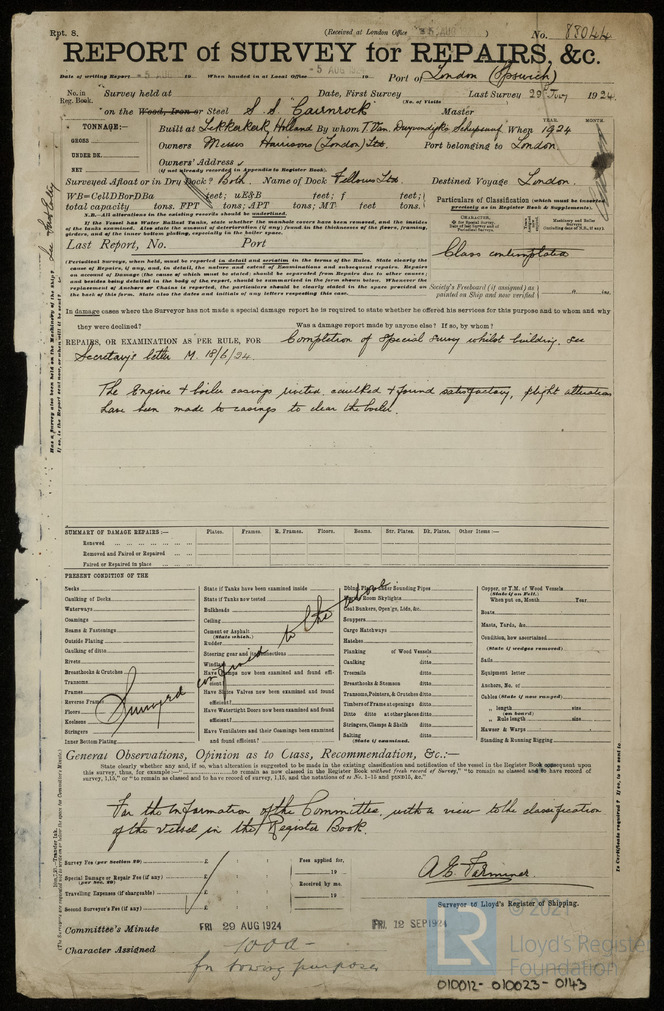 Rpt. 8.
(Received at London Office
No. 88044
REPORT of SURVEY for REPAIRS, &c.
Date of writing Report 5 AUG 19 When handed in at Local Office 5 AUG 19 Port of London (Ipswich)
No. in Reg. Book. Survey held at Date, First Survey Last Survey 29th July 1924
(No. of Visits
on the Wood, Iron or Steel S.S. "Cairnrock" Master
TONNAGE:—
GROSS
UNDER DK.
NET
Built at Lekkerkerk Holland By whom T. Van Duyvendijks Scheepswf When 1924
YEAR. MONTH.
Owners Messrs Harrisons (London) Ltd. Port belonging to London
Owners' Address
(if not already recorded in Appendix to Register Book.)
Surveyed Afloat or in Dry Dock? Both. Name of Dock Fellows Ltd Destined Voyage London.
WB=CellDBorDBa feet; uE&B feet; f feet;
total capacity tons. FPT tons; APT tons; MT feet tons.
N.B.—All alterations in the existing records should be underlined.
If the Vessel has Water Ballast Tanks, state whether the manhole covers have been removed, and the insides
of the tanks examined. Also state the amount of deterioration (if any) found in the thicknesses of the floors, framing,
girders, and of the inner bottom plating, especially in the boiler space.
Particulars of Classification (which must be inserted
precisely as in Register Book & Supplements).
Last Report, No. Port
Class contemplated
(Periodical Surveys, when held, must be reported in detail and seriatim in the terms of the Rules. State clearly the
cause of Repairs, if any, and, in detail, the nature and extent of Examinations and subsequent repairs. Repairs
on account of Damage (the cause of which must be stated) should be separated from Repairs due to other causes;
and besides being detailed in the body of the report, should be summarized in the form shown below. Whenever the
replacement of Anchors or Chains is reported, the particulars should be clearly stated in the space provided on
the back of this form. State also the dates and initials of any letters respecting this case.
Society's Freeboard (if assigned) as
painted on Ship and now verified
In damage cases where the Surveyor has not made a special damage report he is required to state whether he offered his services for this purpose and to whom and why
they were declined? Was a damage report made by anyone else? If so, by whom?
REPAIRS, OR EXAMINATION AS PER RULE, FOR Completion of special survey whilst building, see
Secretary's letter M. 18/6/24.
The Engine & boiler casings riveted, caulked & found satisfactory, slight alterations
have been made to casings to clear the boiler.
SUMMARY OF DAMAGE REPAIRS:— Plates. Frames. R. Frames. Floors. Beams. Str. Plates. Dk. Plates. Other Items:—
Renewed
Removed and Faired or Repaired
Faired or Repaired in place
PRESENT CONDITION OF THE
Decks
Caulking of Decks
Waterways
Coamings
Beams & Fastenings
Outside Plating
Caulking of ditto
Rivets
Breasthooks & Crutches
Transoms
Frames
Reverse Frames
Floors
Keelsons
Stringers
Inner Bottom Plating
State if Tanks have been examined inside
State if Tanks now tested
Bulkheads
Ceiling
Cement or Asphalt
(State which.)
Rudder
Steering gear and its connections
Windlass
Have Pumps now been examined and found efficient?
Have Sluice Valves now been examined and found efficient?
Have Watertight Doors now been examined and found efficient?
Have Ventilators and their Coamings been examined and found efficient?
Dblng. Plates under Sounding Pipes
Engine Room Skylights
Coal Bunkers, Open'gs, Lids, &c.
Scuppers
Cargo Hatchways
Hatches
Planking of Wood Vessels
Caulking ditto
Treenails ditto
Breasthooks & Stemson ditto
Transoms, Pointers, & Crutches ditto
Timbers of Frame at openings ditto
Ditto ditto at other places ditto
Stringers, Clamps & Shelfs ditto
Salting ditto
(State if examined.)
Copper, or Y.M. of Wood Vessels
(State if on Felt.)
When put on, Month Year
Boats
Masts, Yards, &c.
Condition, how ascertained
(State if wedges removed)
Sails
Equipment letter
Anchors, No. of
Cables (State if now ranged)
" length size
(on board)
" Rule length size
Hawser & Warps
Standing & Running Rigging
Survey confined to the above
General Observations, Opinion as to Class, Recommendation, &c.:—
State clearly whether any and, if so, what alteration is suggested to be made in the existing classification and notification of the vessel in the Register Book consequent upon
this survey, thus, for example:—"to remain as now classed in the Register Book without fresh record of Survey," "to remain as classed and to have record of
survey, 1,15," or "to remain as classed and to have record of survey, 1,15, and the notation of
For the Information of the Committee, with a view to the classification
of the vessel in the Register Book.
Survey Fee (per Section 29) £
Special Damage or Repair Fee (if any) £
(per Sec. 29)
Travelling Expenses (if chargeable) £
Second Surveyor's Fee (if any) £
Fees applied for,
19
Received by me,
19
A. E. Farminer.
Surveyor to Lloyd's Register of Shipping.
Committee's Minute FRI 29 AUG 1924 FRI. 12 SEP 1924
Character Assigned 100A-
for towing purposes
© 2021
LR
Lloyd's Register
Foundation
010012-010023-0143